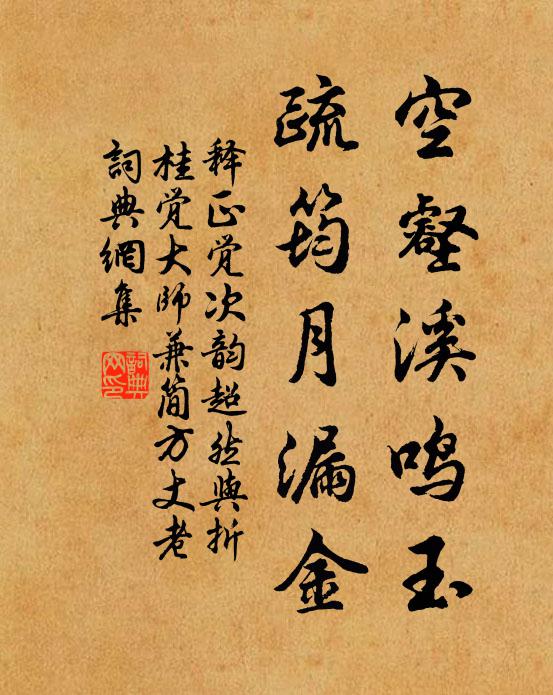 空壑溪鸣玉
疏筠月漏金
释正觉次韵超然与折
桂觉大师兼简方丈老
詞典網集
詞典
网印